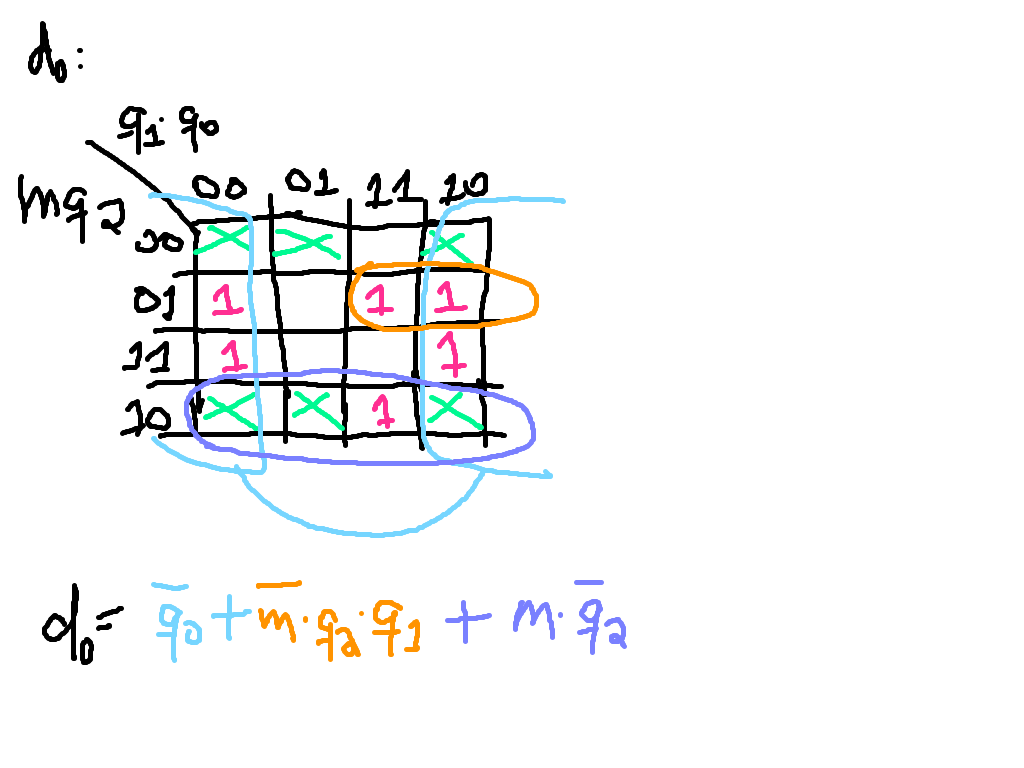 d₀:
q₁·q₀
00 01 11 10
mq₂
00 X X X
01 1 1 1
11 1 1
10 X X 1 X
d₀= q̅₀+m̅·q₂·q₁ + m·q̅₂